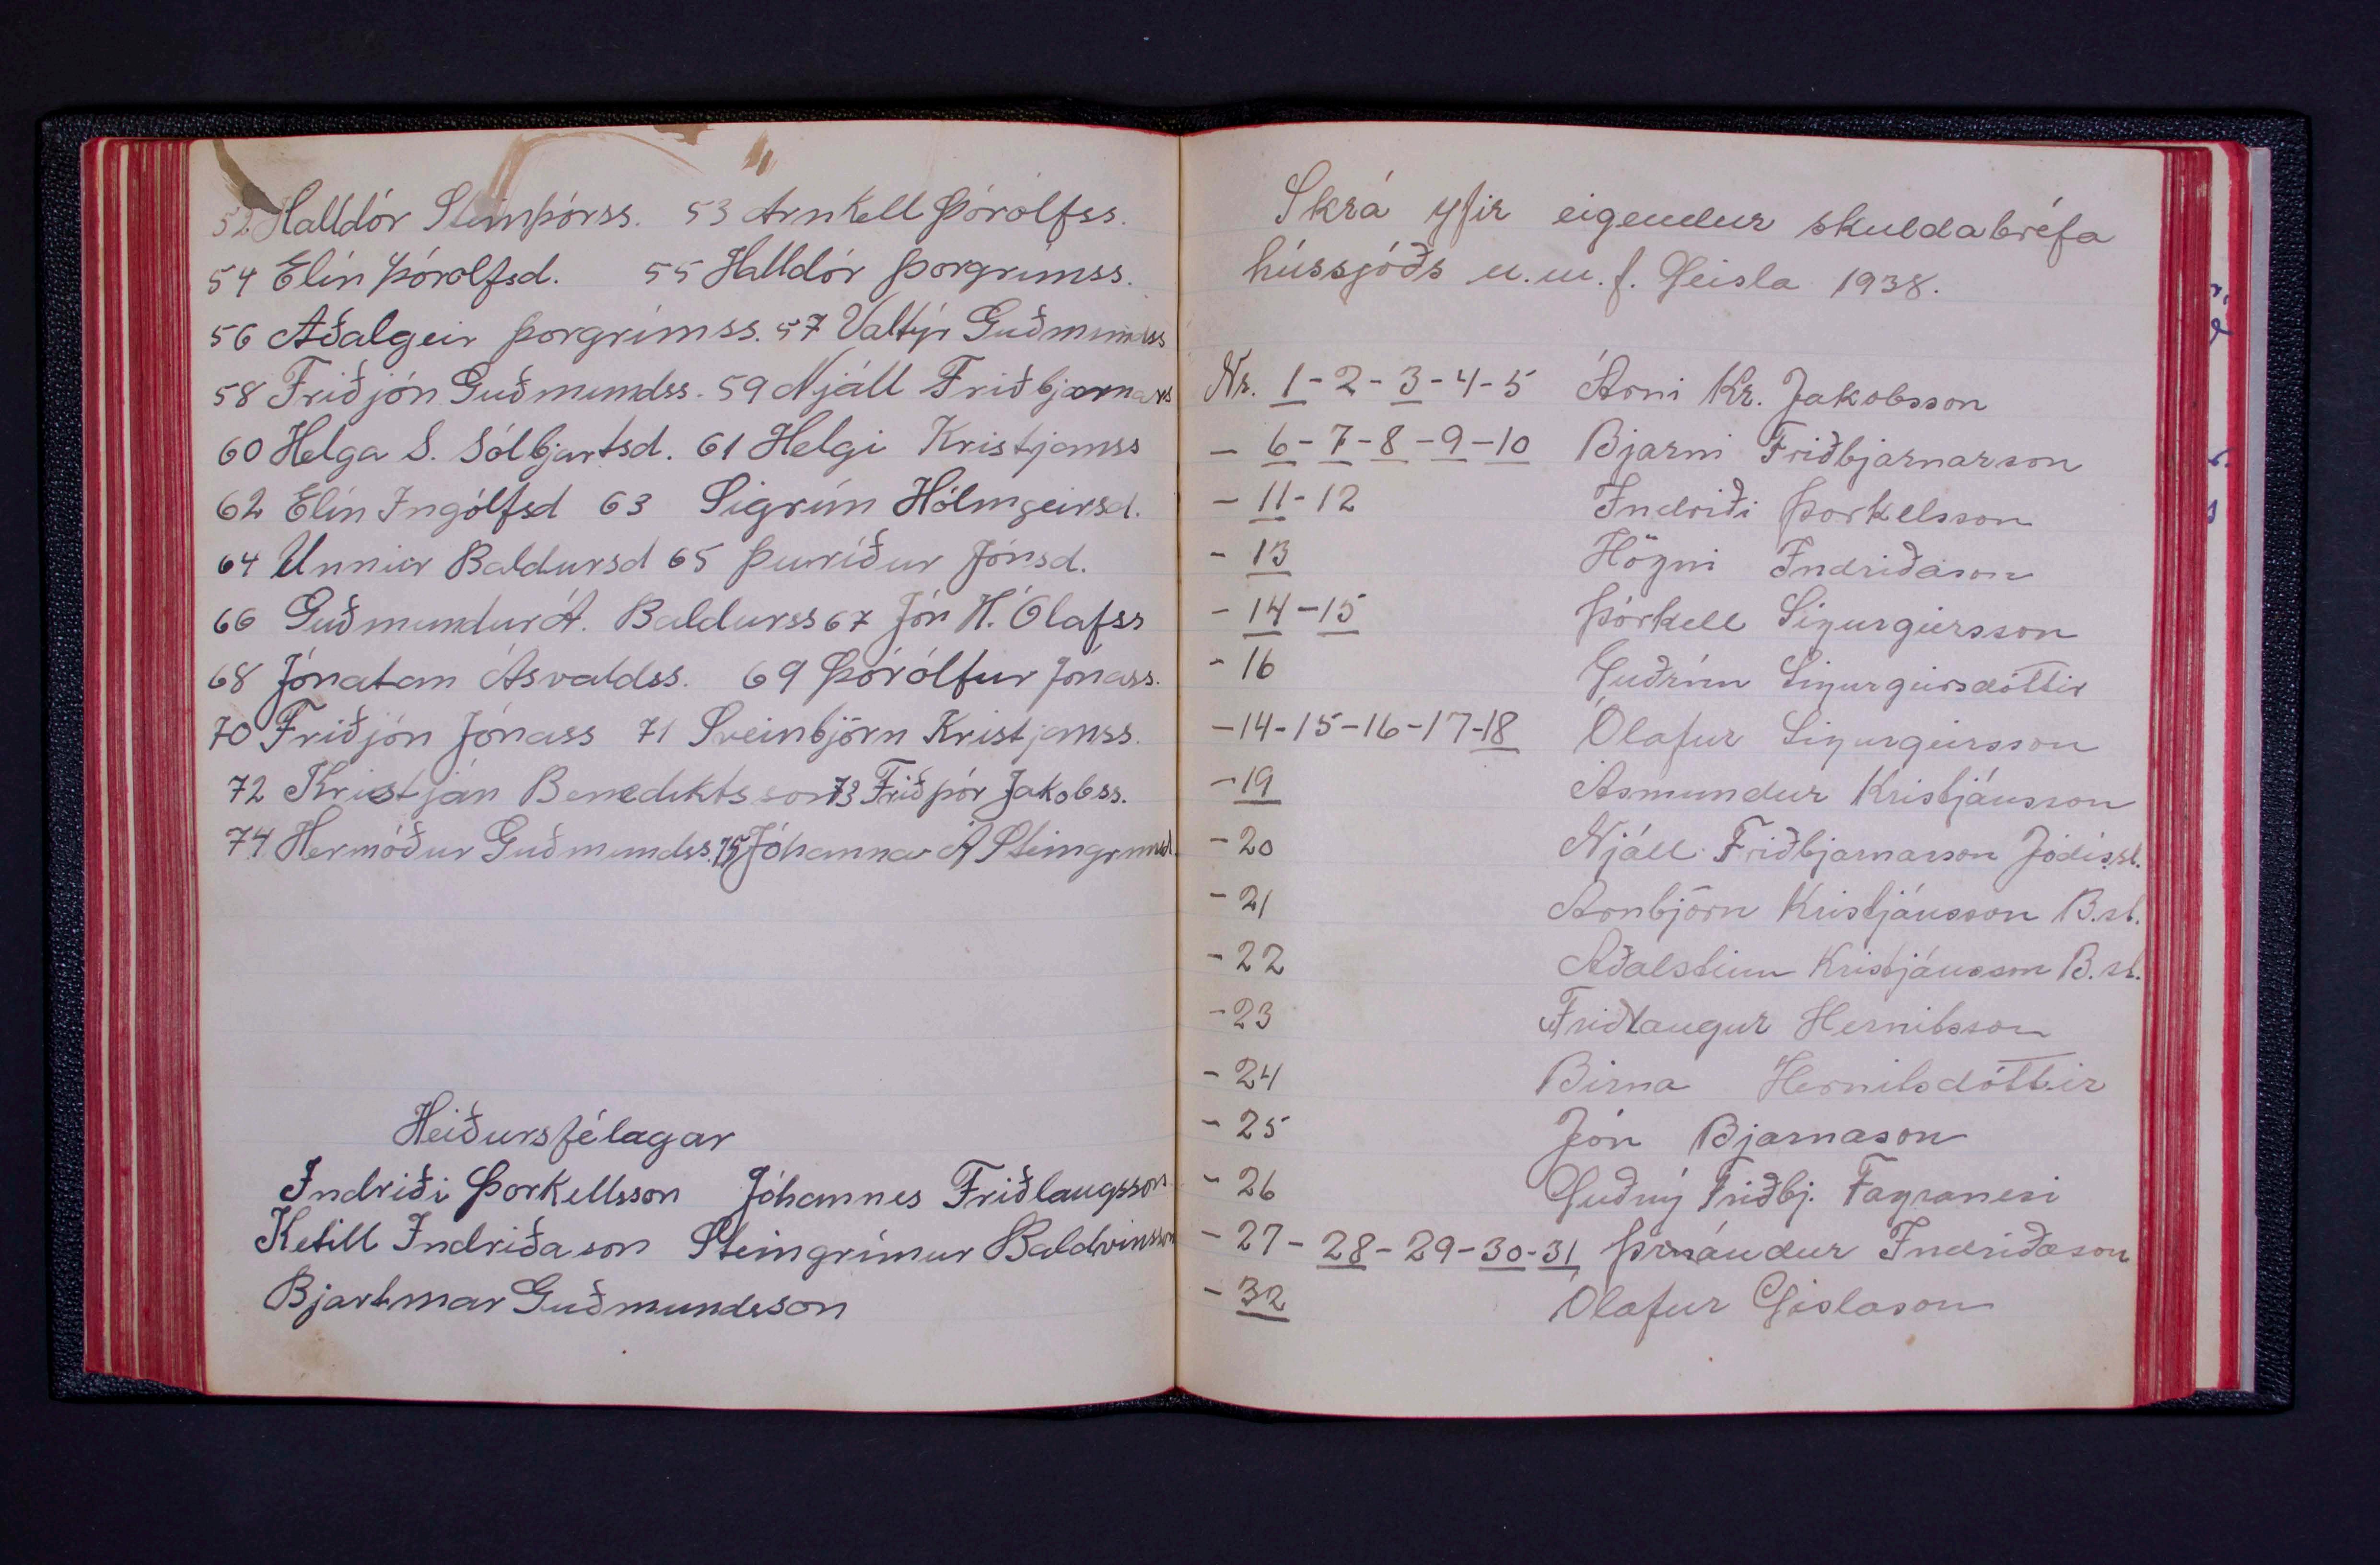 52. Halldór Steinþórss. 53 Arnkell Þórólfss.
54 Elín Þórólfsd. 55 Halldór Þorgrímss.
56 Aðalgeir Þorgrímss. 57 Valtýr Guðmundss
58 Friðjón Guðmundss. 59 Njáll Friðbjarnars
60 Helga S. Sólbjartsd. 61 Helgi Kristjánss
62 Elín Ingólfsd 63 Sigrún Hólmgeirsd.
64 Unnur Baldursd 65 Þuríður Jónsd.
66 Guðmundur A. Baldurss 67 Jón H. Ólafss
68 Jónatan Ásvaldss. 69 Þórólfur Jónass.
70 Friðjón Jónass 71 Sveinbjörn Kristjánss.
72 Kristján Benediktsson 73 Friðþór Jakobss.
74 Hermóður Guðmundss. 75 Jóhanna Á Steingrímsd.
Heiðursfélagar
Indriði Þorkellsson Jóhannes Friðlaugsson
Ketill Indriðason Steingrímur Baldvinsson
Bjartmar Guðmundsson
Skrá yfir eigendur skuldabréfa
hússjóðs u.m.f. Geisla 1938.
Nr. 1-2-3-4-5 Árni Kr. Jakobsson
- 6-7-8-9-10 Bjarni Friðbjarnarson
- 11-12 Indriði Þorkelsson
- 13 Högni Indriðason
- 14-15 Þórkell Sigurgeirsson
- 16 Guðrún Sigurgeirsdóttir
- 14-15-16-17-18 Ólafur Sigurgeirsson
- 19 Ásmundur Kristjánsson
- 20 Njáll Friðbjarnarson Jódísst.
- 21 Arnbjörn Kristjánsson B.st.
- 22 Aðalsteinn Kristjánsson B.st.
- 23 Friðlaugur Hernitsson
- 24 Birna Hernitsdóttir
- 25 Jón Bjarnason
- 26 Guðný Friðbj. Fagranesi
- 27-28-29-30-31 Þrándur Indriðason
- 32 Ólafur Gíslason